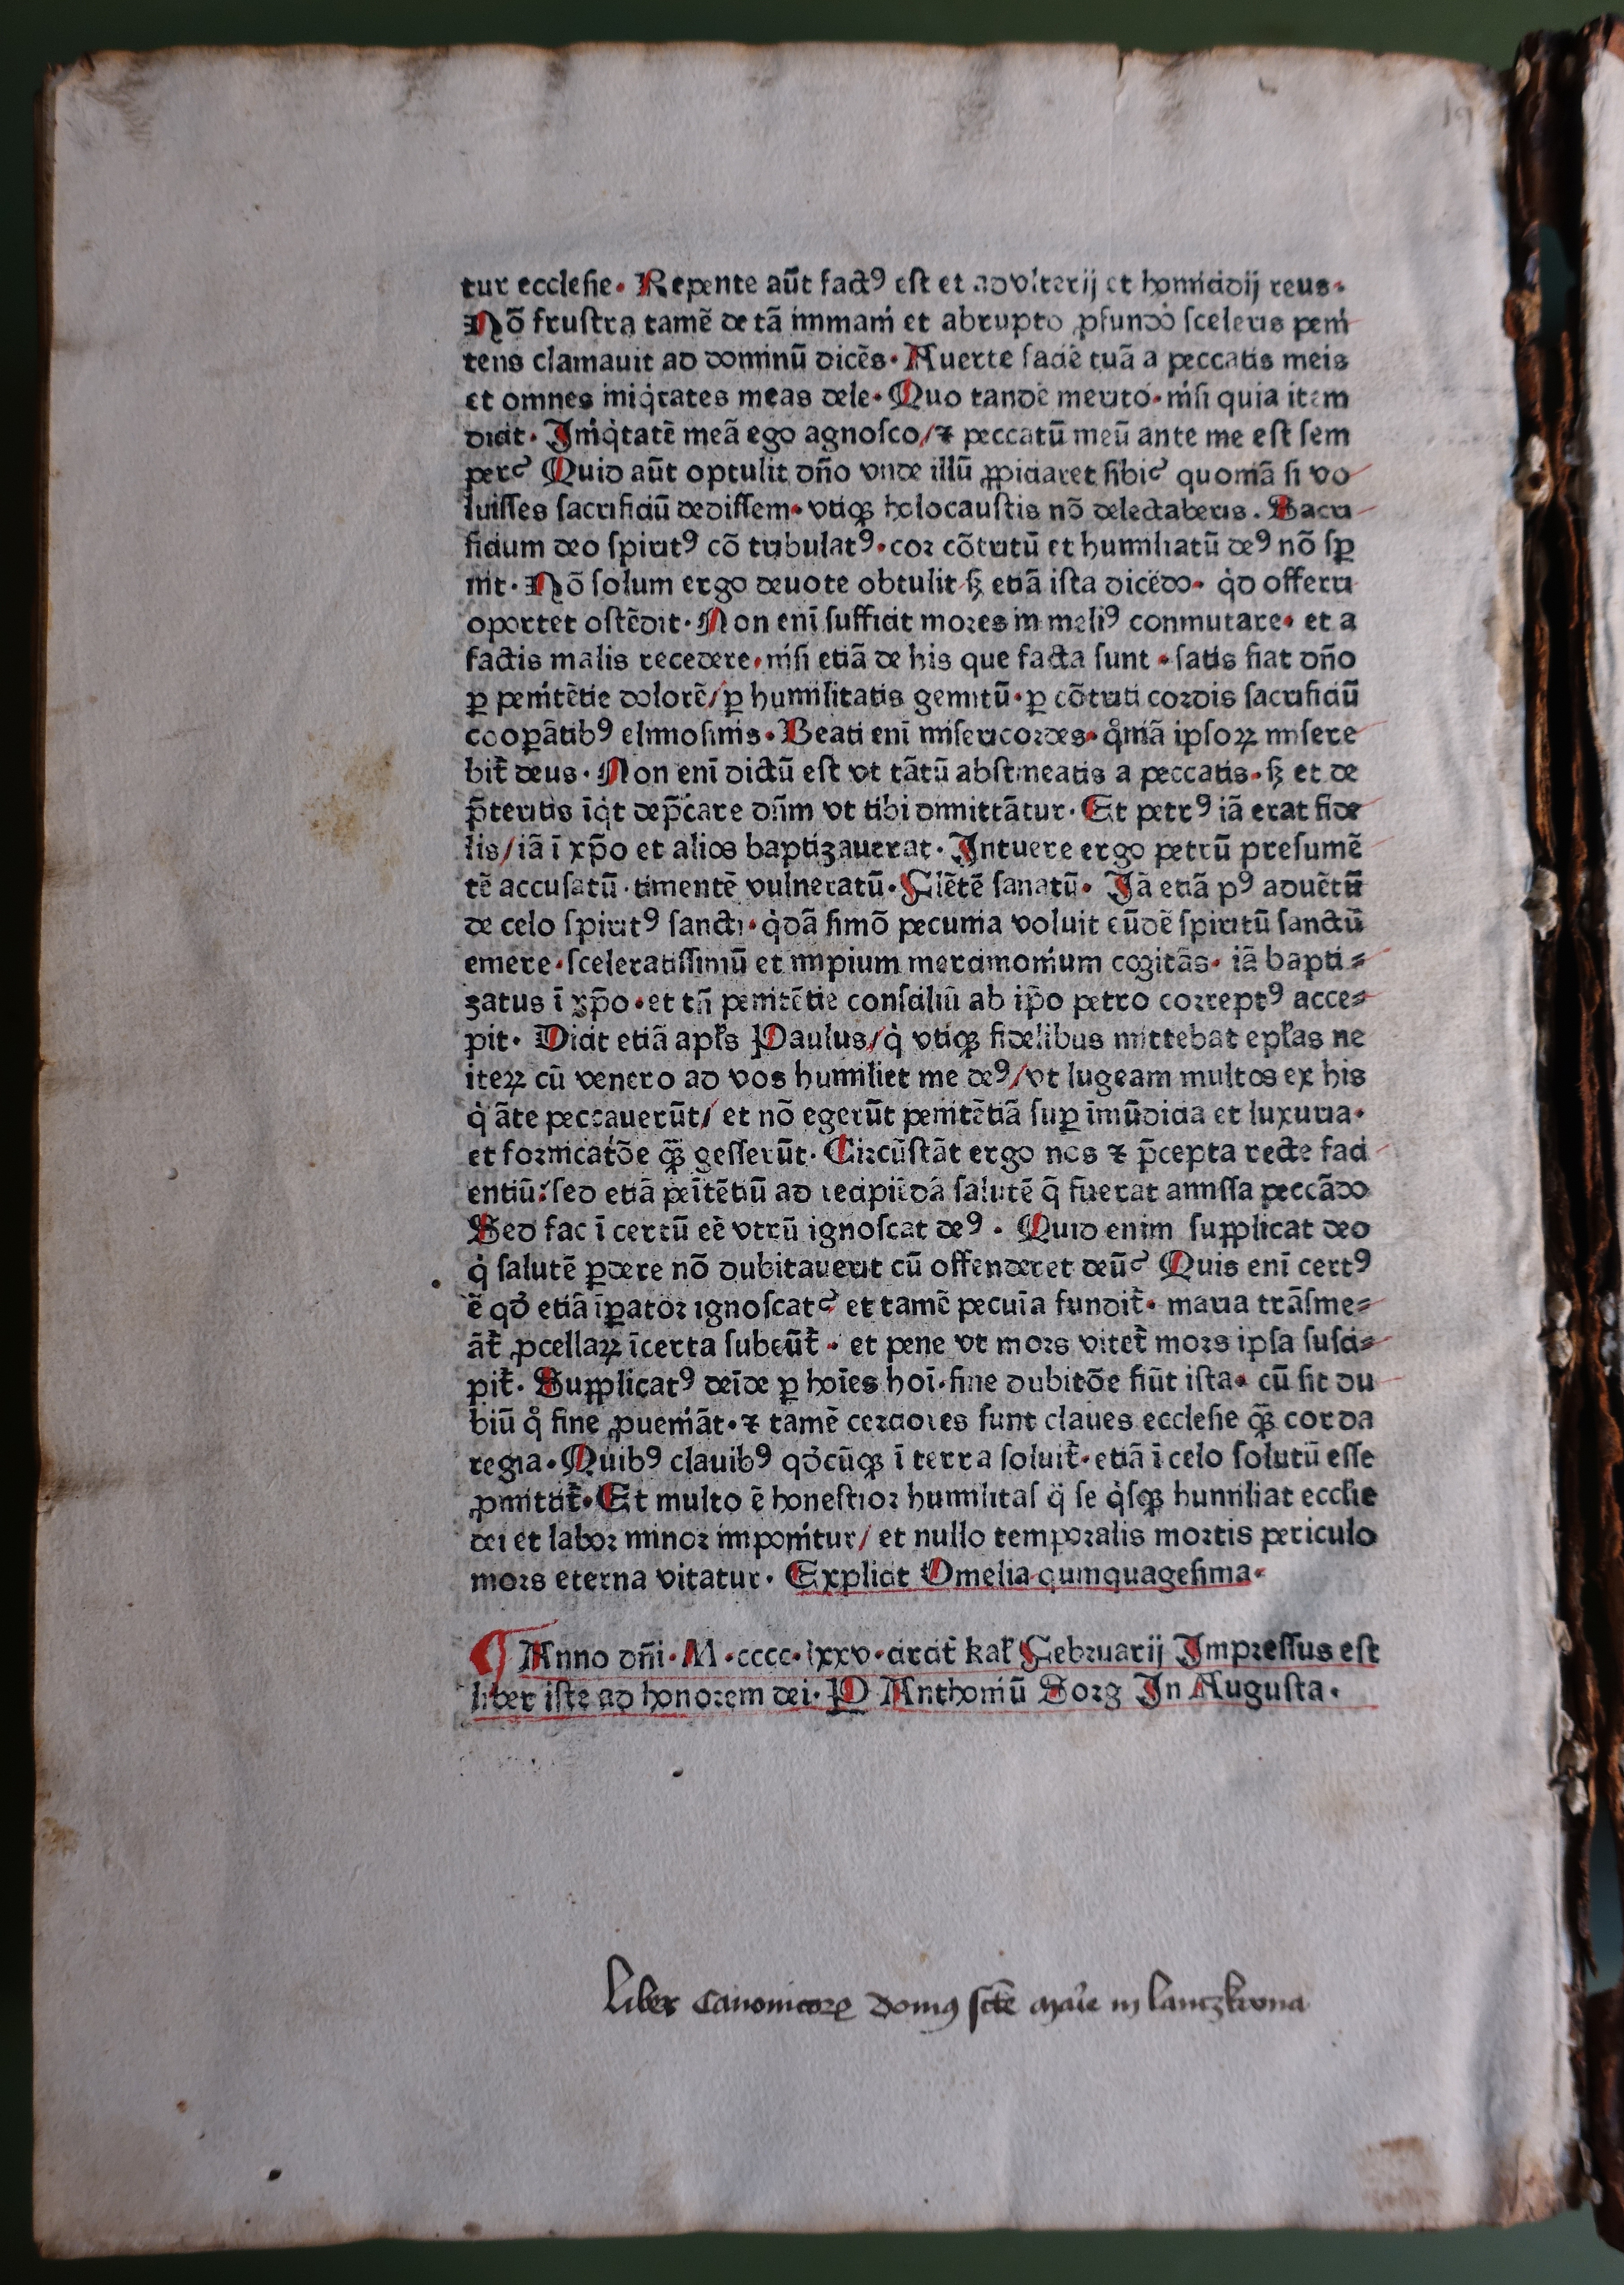 tur ecclesie· Repente aūt factꝰ est et adulterij et homicidij reus·
Nō frustra tamē de tā immani et abrupto ꝓfundo sceleris peni
tens clamauit ad dominū dicēs· Auerte faciē tuā a peccatis meis
et omnes iniqitates meas dele· Quo tandē merito· nisi quia item
dicit· Iniqitatē meā ego agnosco/ ⁊ peccatū meū ante me est sem
per? Quid aūt optulit dño vnde illū ꝓpiciaret sibi? quoniā si vo
luisses sacrificiū dedissem· vtiqꝫ holocaustis nō delectaberis. Sacri
ficium deo spiritꝰ cō tribulatꝰ· cor cōtritū et humiliatū deꝰ nō sꝑ
nit· Nō solum ergo deuote obtulit sꝫ etiā ista dicēdo· qd offerri
oportet ostēdit· Non enī sufficit mores in meliꝰ conmutare· et a
factis malis recedere· nisi etiā de his que facta sunt · satis fiat dño
ꝑ penitētie dolorē/ ꝑ humilitatis gemitū· ꝑ cōtriti cordis sacrificiū
cooꝑātibꝰ elimosinis· Beati enī misericordes· qm̄iā ipsoꝝ misere
bit̄ deus· Non enī dictū est vt tātū abstineatis a peccatis· sꝫ et de
p̄teritis īqt dep̄care dn̄m vt tibi dimittātur· Et petrꝰ iā erat fide
lis/ iā ī xp̄o et alios baptizauerat· Intuere ergo petrū presumē
tē accusatū · timentē vulneratū· Flētē sanatū· Iā etiā pꝰ aduētū
de celo spiritꝰ sancti· qdā simō pecunia voluit eūdē spiritū sanctū
emere· sceleratissimū et impium mercimonium cogitās· iā bapti⸗
zatus ī xp̄o· et tn̄ penitētie consciliū ab ip̄o petro correptꝰ acce⸗
pit· Dicit etiā apl̄s Paulus/ q vtiqꝫ fidelibus mittebat epl̄as ne
iteꝝ cū venero ad vos humiliet me deꝰ/ vt lugeam multos ex his
q āte peccauerūt/ et nō egerūt penitētiā suꝑ īmūdicia et luxuria·
et fornicatōe qꝫ̄ gesserūt· Circūstāt ergo nos ⁊ p̄cepta recte faci
entiū: sed etiā peītētiū ad recipiēdā salutē q̄ fuerat amissa peccādo
Sed fac ī certū eē vtrū ignoscat deꝰ · Quid enim supplicat deo
q salutē ꝑdere nō dubitauerit cū offenderet deū? Quis enī certꝰ
ē qd etiā īꝑator ignoscat? et tamē pecuīa fundit̄· maria trāsme⸗
āt̄ ꝓcellaꝝ īcerta subeūt̄ · et pene vt mors vitet̄ mors ipsa susci⸗
pit̄· Supplicatꝰ deīde ꝑ hoīes hoī· sine dubitōe fiūt ista· cū sit du
biū qo fine ꝓueniāt· ⁊ tamē certiores sunt claues ecclesie qꝫ̄ corda
regia· Quibꝰ clauibꝰ qdcūqꝫ ī terra soluit̄· etiā ī celo solutū esse
ꝓmittit̄· Et multo ē honestior humilitas q̄ se qsqꝫ humiliat eccl̄ie
dei et labor minor imponitur/ et nullo temporalis mortis periculo
mors eterna vitatur· Explicit Omelia quinquagesima·
¶ Anno dñi· M·cccc·lxxv·circit̄ kal̄ Februarij Impressus est
liber iste ad honorem dei· P Anthoniū Sorg In Augusta·
Liber Canonicorꝝ domꝰ scte marie in lanczkrona